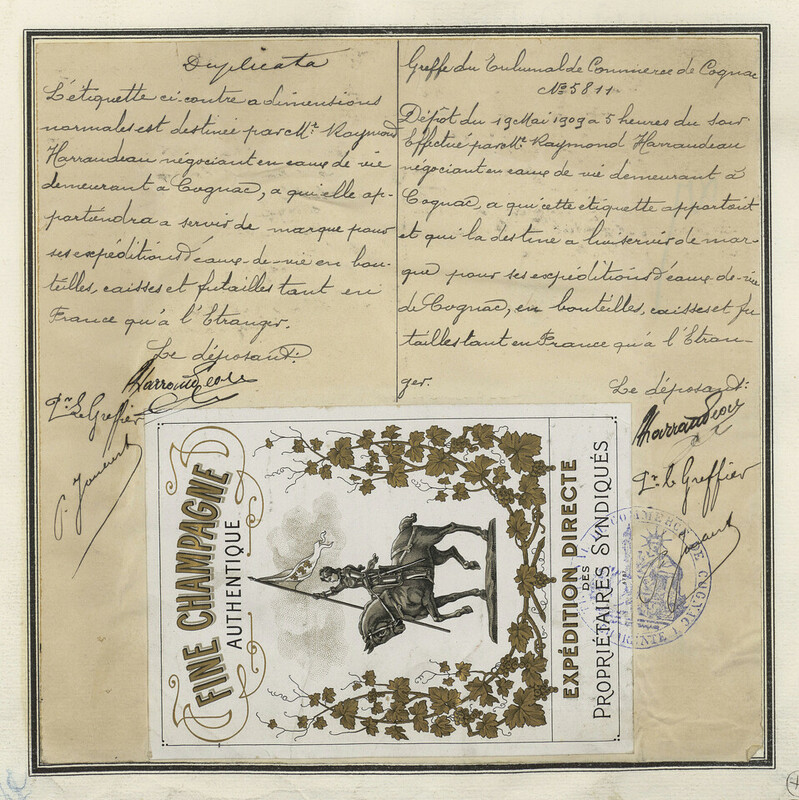 Duplicata
L'étiquette ci-contre a dimensions
normales est destinée par Mr. Raymond
Harraudeau négociant en eaux de vie
demeurant à Cognac, a qui elle ap-
partiendra a servir de marque pour
ses expéditions d'eaux-de-vie en bou-
teilles, caisses et futailles tant en
France qu'à l'Etranger.
Le déposant:
RHarraudeau
Pr. Le Greffier
Greffe du Tribunal de Commerce de Cognac
No 5811
Dépôt du 19 Mai 1909 a 5 heures du soir
Effectué par Mr. Raymond Harraudeau
négociant en eaux de vie demeurant à
Cognac, a qui cette etiquette appartient
et qui la destine a lui servir de mar-
que pour ses expéditions d'eaux-de-vie
de Cognac, en bouteilles, caisses et fu
tailles tant en France qu'à l'Etran-
ger.
Le déposant:
RHarraudeau
Pr. le Greffier
FINE CHAMPAGNE
AUTHENTIQUE
EXPÉDITION DIRECTE
DES
PROPRIÉTAIRES SYNDIQUÉS
COMMERCE DE COGNAC
CHARENTE